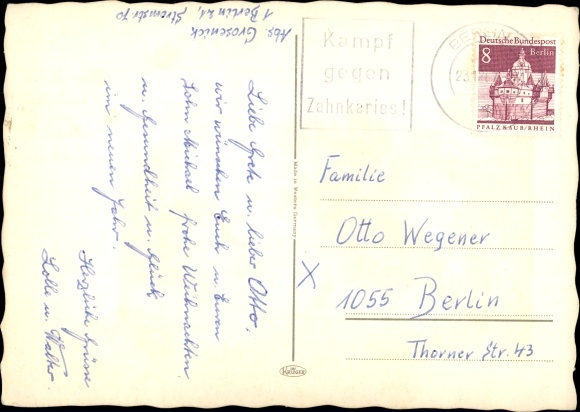 Abs. Grosenick
1 Berlin 21, Stromstr. 70
Liebe Grete u. lieber Otto,
wir wünschen Euch u. Euren
Sohn Michael frohe Weihnachten
u. Gesundheit u. Glück
im neuen Jahr.
Herzliche Grüsse
Lolle u. Walter.
Kampf
gegen
Zahnkaries!
BERLIN
23.12
Deutsche Bundespost
8 Berlin
PFALZ KAUB/RHEIN
Made in Western Germany
Familie
Otto Wegener
X
1055 Berlin
Thorner Str. 43
Krüger